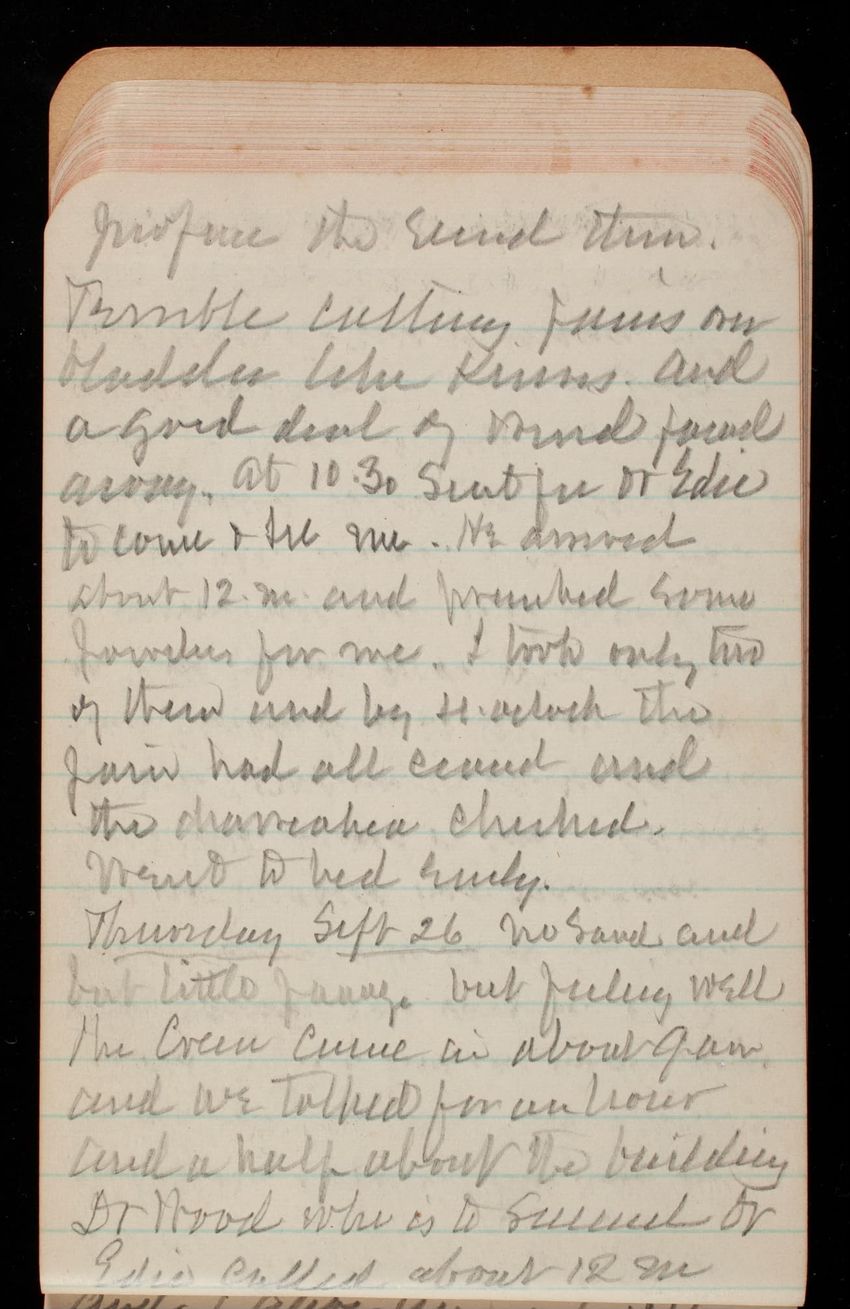 profuse the second time.
Terrible cutting pains over
bladder like knives. And
a good deal of wind passed
away. At 10.30 sent for Dr Edie
to come & see me. He arrived
about 12. M. and prescribed some
powders for me. I took only two
of them and by o'clock the
pain had all ceased and
the diarrahea checked.
Went to bed early.
Thursday Sept 26 no sand and
but little but feeling well
Mr. Green came in about 9 am.
and we talked for an hour
and a half about the building
Dr Wood who is to succeed Dr
Edie called about 12 M